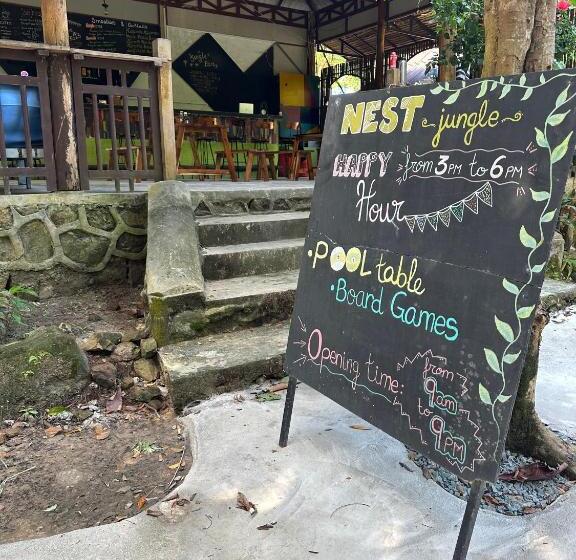 NEST jungle
HAPPY from 3PM to 6PM
Hour
• POOL table
• Board Games
Opening time:
from
9am
to
9PM